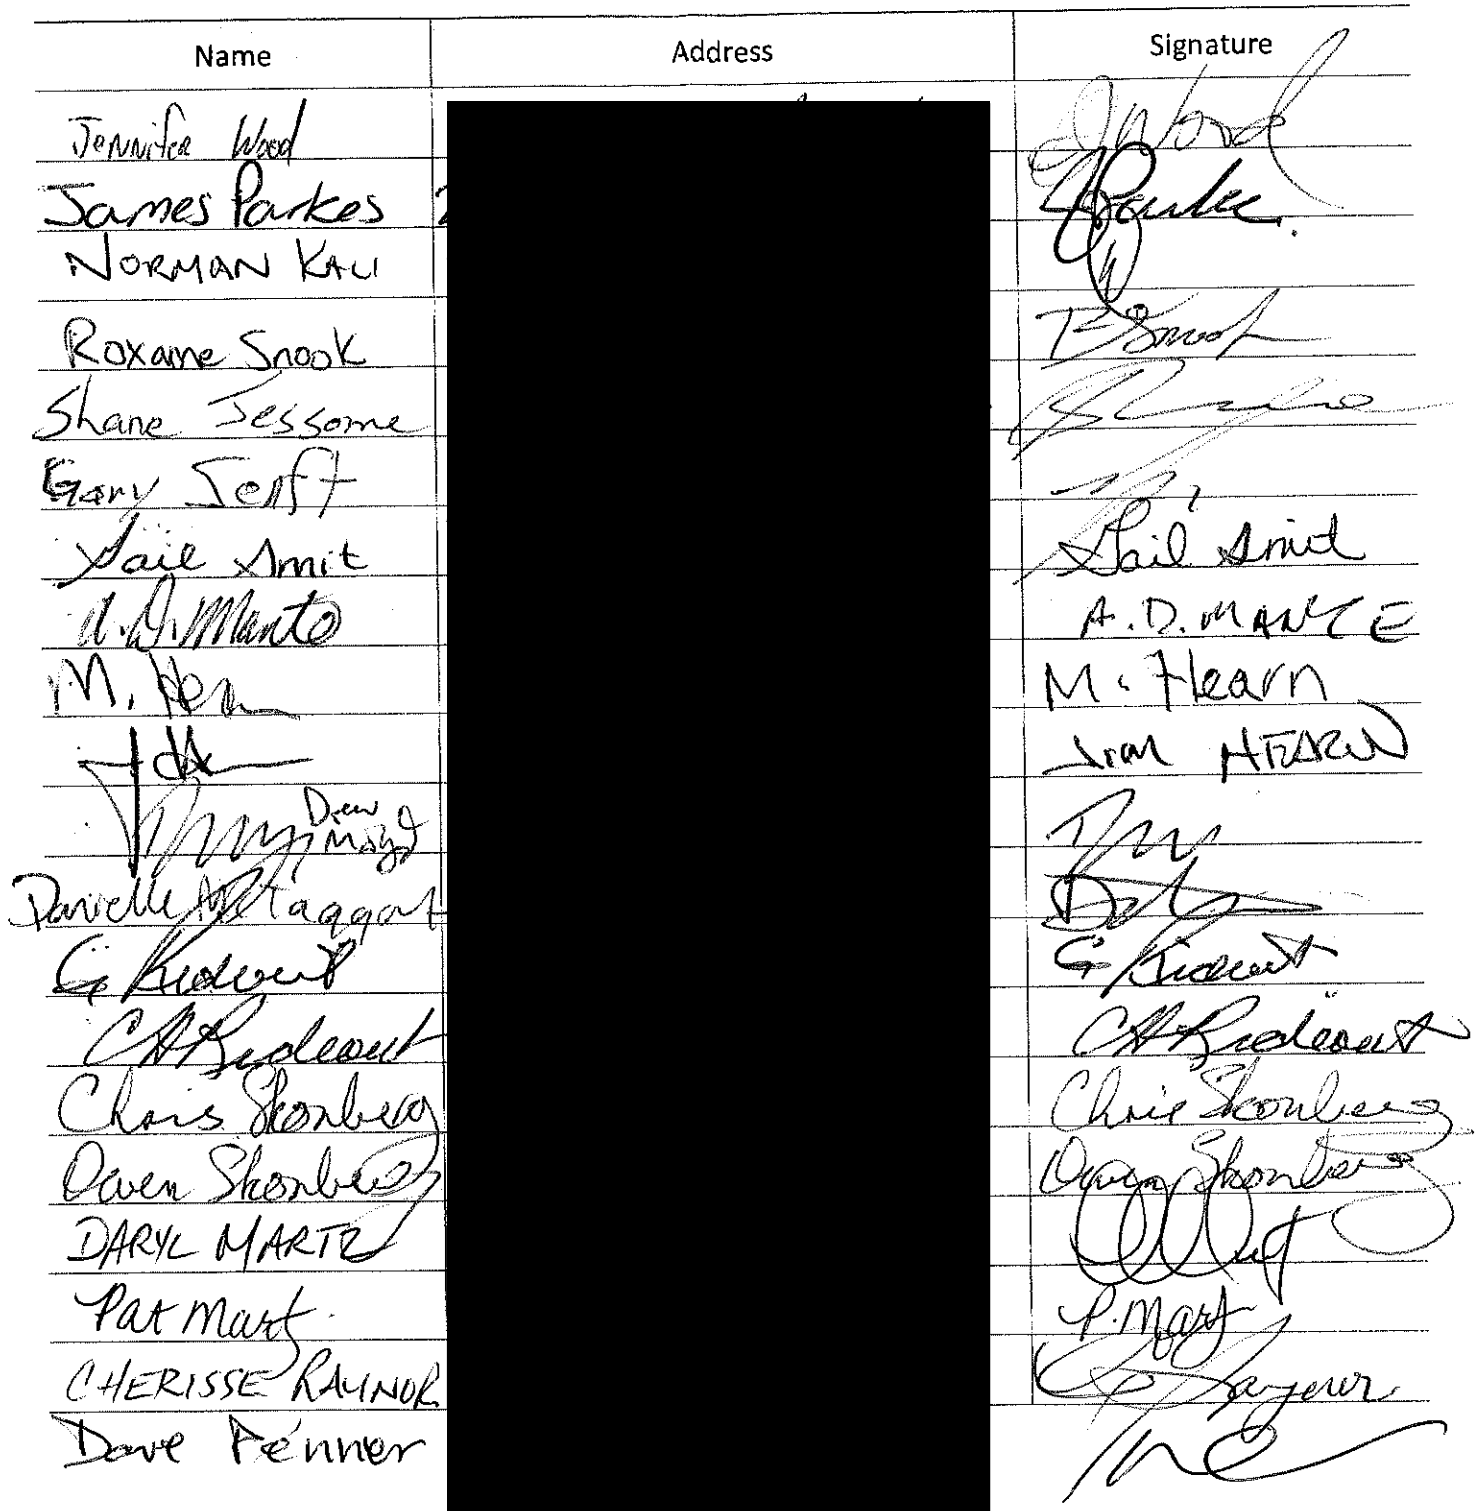 Name Address Signature
Jennifer Wood J Wood
James Parkes JParkes.
NORMAN KALI
Roxanne Snook R Snook
Shane Jessome
Gary Senft
Gail Smit Gail Smit
A.D. Mante A.D. MANTE
M. Hearn M. Hearn
Jim HEARN
Drew
Danielle McTaggart
G Rideout G Rideout
CH Rideout CH Rideout
Chris Skonberg Chris Skonberg
Owen Skonberg Owen Skonberg
DARYL MARTZ
Pat Martz P. Martz
CHERISSE RAYNOR C Raynor
Dave Penner